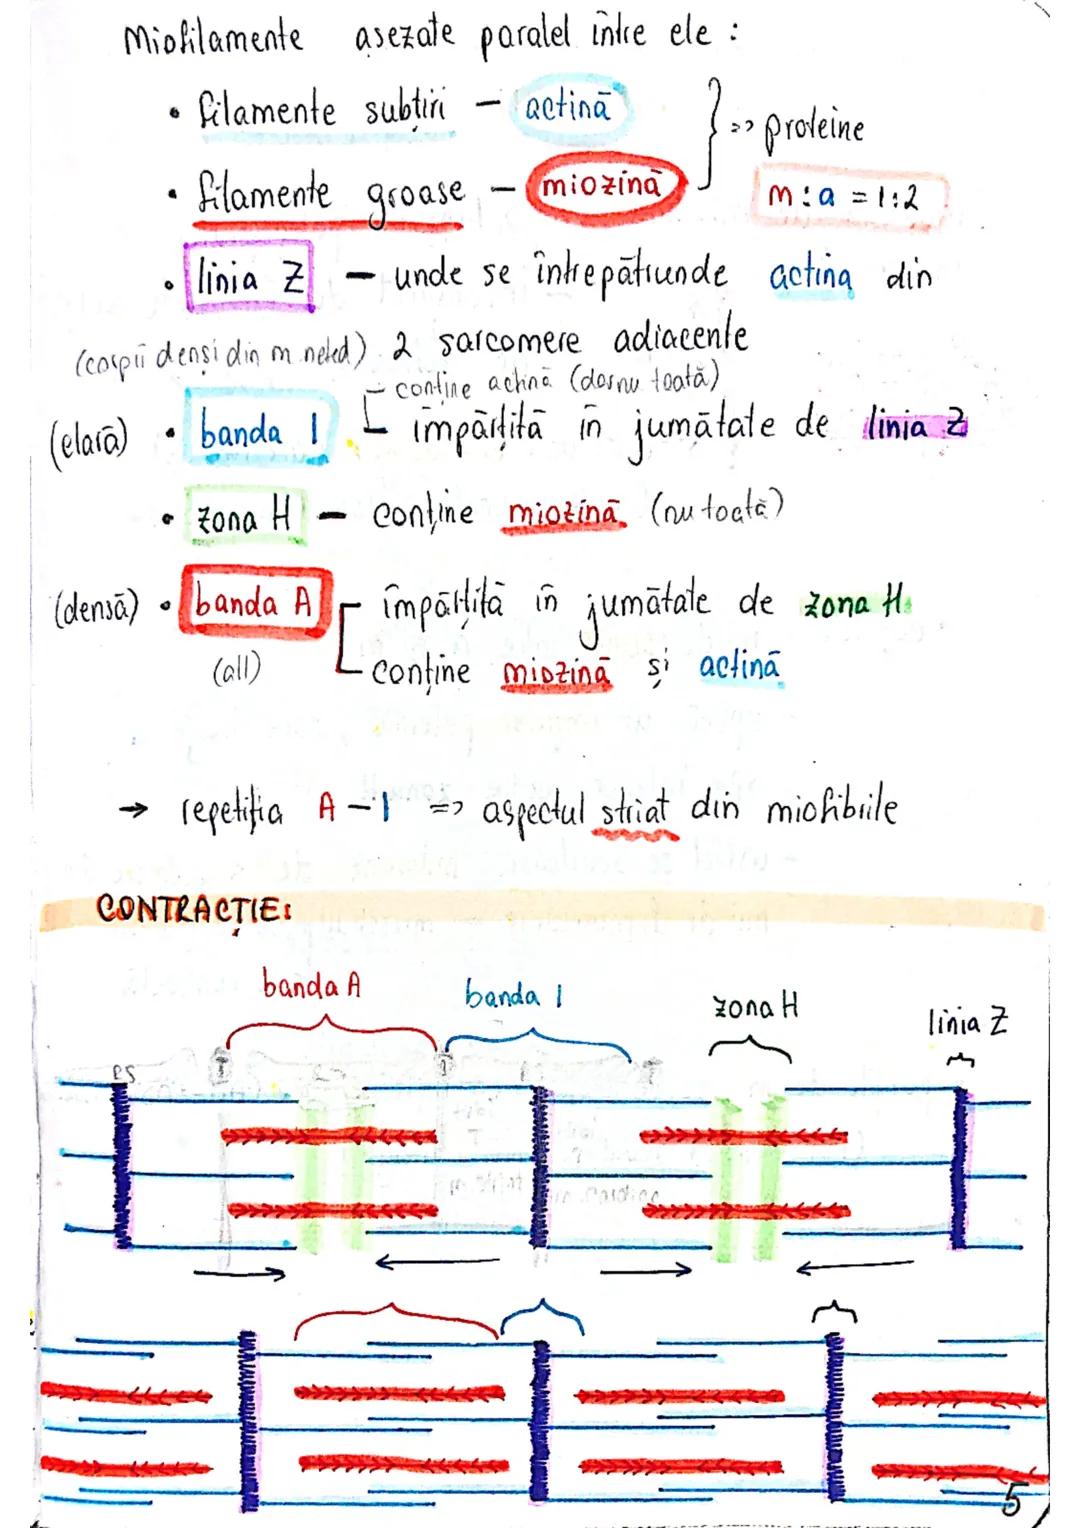 Miofilamente așezate paralel între ele :
• filamente subțiri – actină
} => proteine
• filamente groase – miozină
m : a = 1 : 2
• linia Z – unde se întrepătrunde actina din
(corpii denși din m. neted) 2 sarcomere adiacente
– conține actină (dar nu toată)
(clară) • banda I împărțită în jumătate de linia Z
• zona H – conține miozină (nu toată)
(densă) • banda A împărțită în jumătate de zona H
(all) conține miozină și actină
→ repetiția A – I => aspectul striat din miofibrile
CONTRACȚIE:
banda A
banda I
zona H
linia Z
5